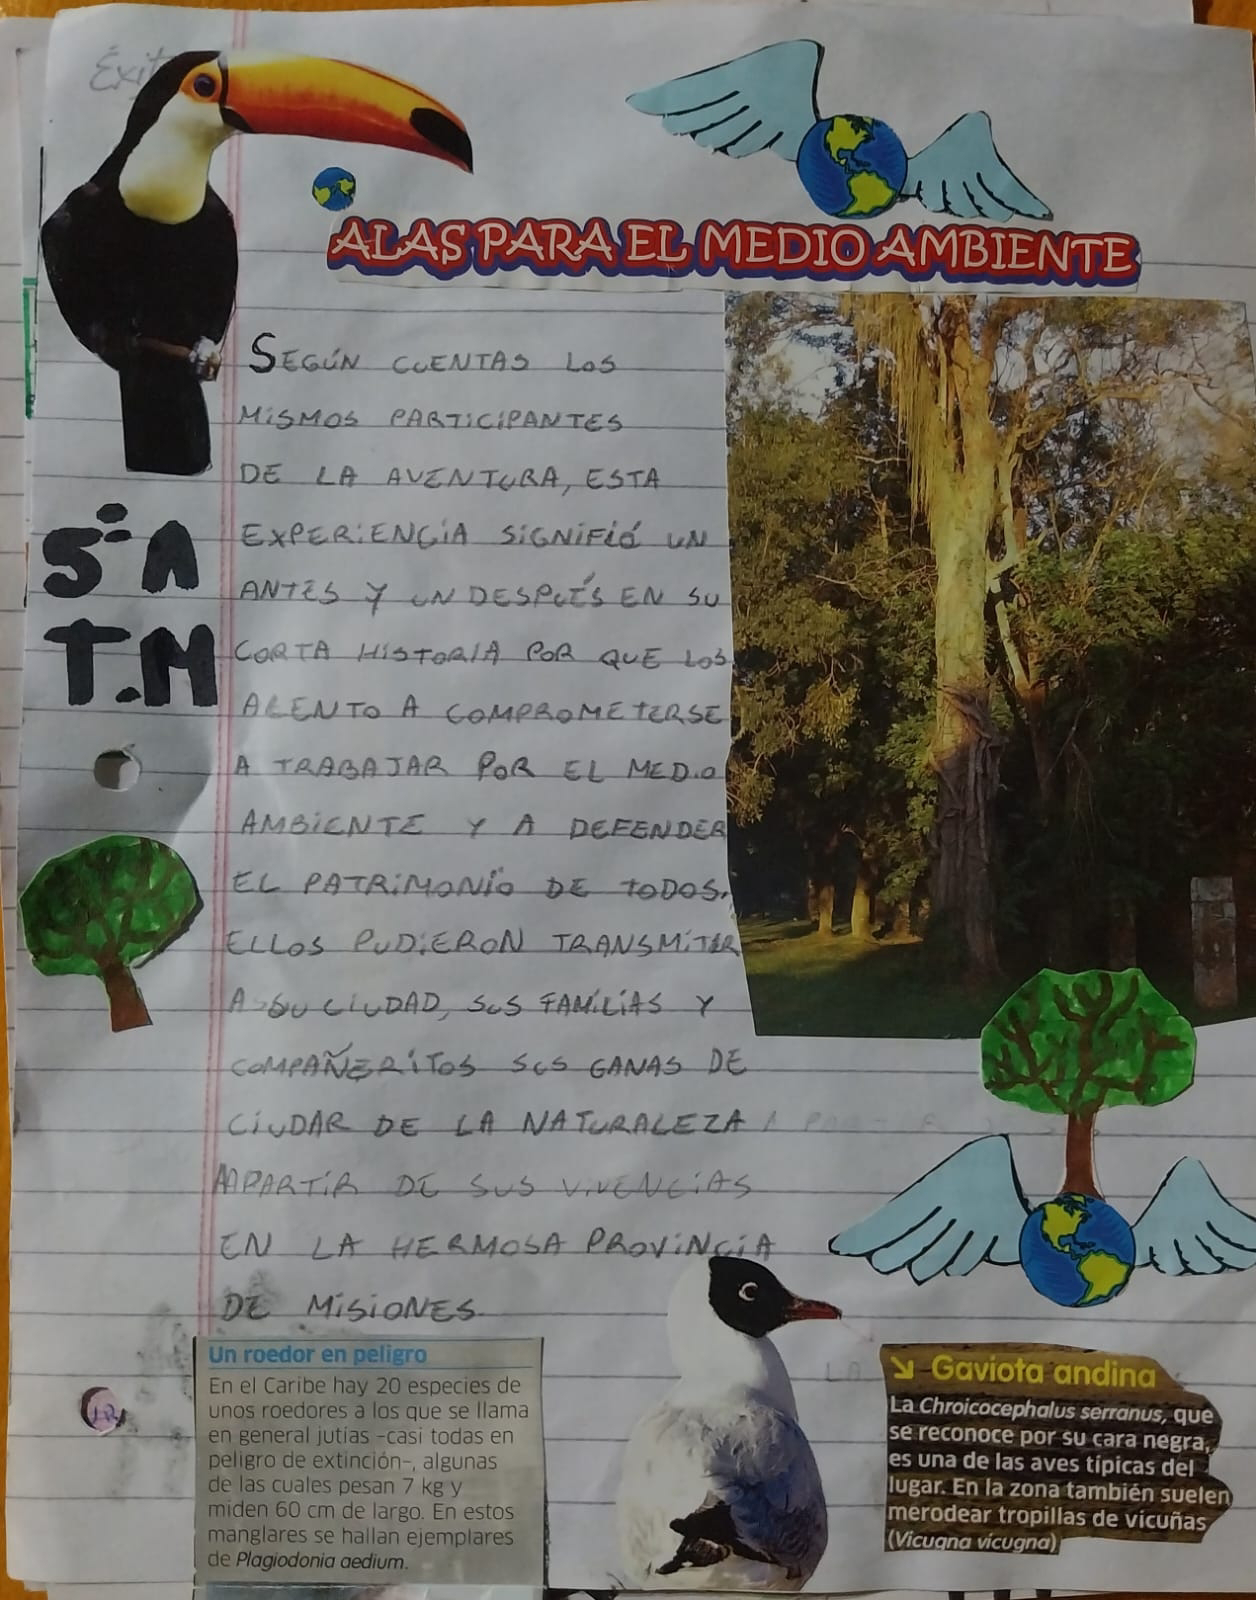 Éxit
ALAS PARA EL MEDIO AMBIENTE
SEGÚN CUENTAS LOS
MISMOS PARTICIPANTES
DE LA AVENTURA, ESTA
EXPERIENCIA SIGNIFIÓ UN
ANTES Y UN DESPUÉS EN SU
CORTA HISTORIA POR QUE LOS
ALENTO A COMPROMETERSE
A TRABAJAR POR EL MEDIO
AMBIENTE Y A DEFENDER
EL PATRIMONIO DE TODOS.
ELLOS PUDIERON TRANSMITIR
A SU CIUDAD, SUS FAMILIAS Y
COMPAÑERITOS SUS GANAS DE
CIUDAR DE LA NATURALEZA
APARTIR DE SUS VIVENCIAS
EN LA HERMOSA PROVINCIA
DE MISIONES.
5° A
T.M
Un roedor en peligro
En el Caribe hay 20 especies de
unos roedores a los que se llama
en general jutías -casi todas en
peligro de extinción-, algunas
de las cuales pesan 7 kg y
miden 60 cm de largo. En estos
manglares se hallan ejemplares
de Plagiodonia aedium.
LA
Gaviota andina
La Chroicocephalus serranus, que
se reconoce por su cara negra,
es una de las aves típicas del
lugar. En la zona también suelen
merodear tropillas de vicuñas
(Vicugna vicugna)